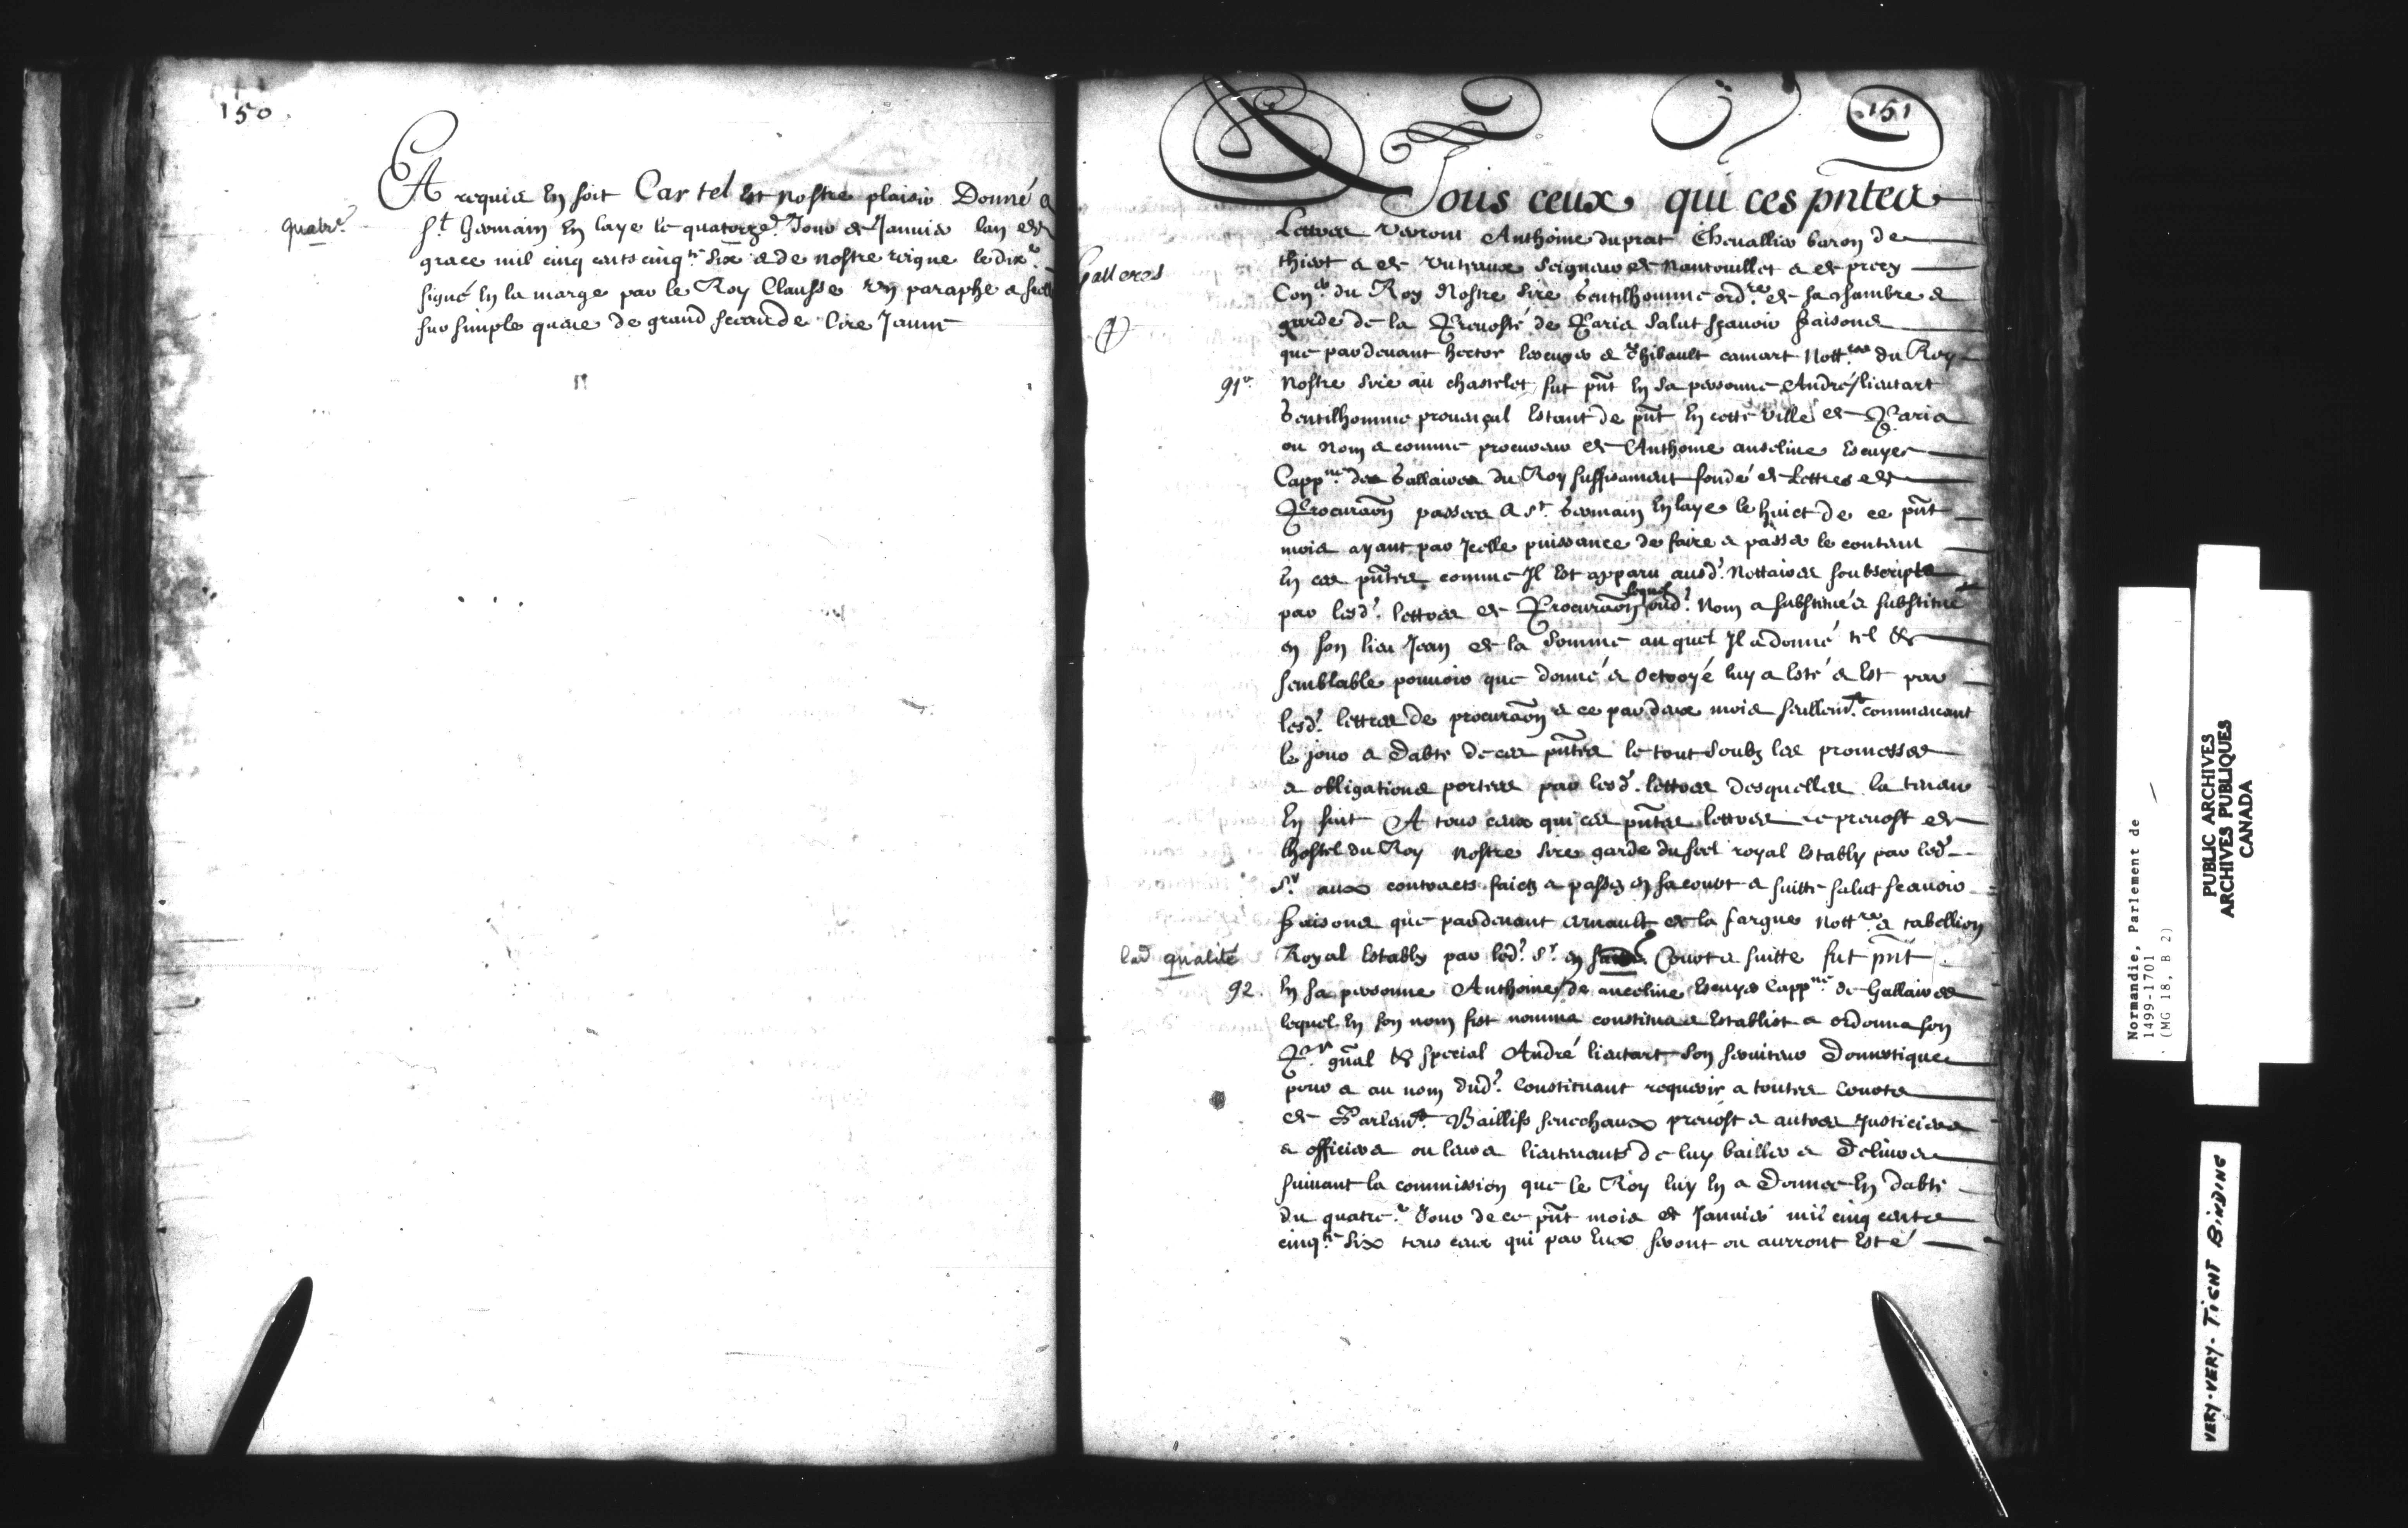 150
Et requis en soit Car tel est nostre plaisir Donné a
quatre.e
St Germain en laye le quatorze.e Jour de Janvier lan de
grace mil cinq cents cinq.te six & de nostre reigne le dix.e
signé en la marge par le Roy Clausse un paraphe & scellé
sur simple queue de grand sceau de cire Jaune
151
A Tous ceux qui ces pntes
Lettres verront Anthoine duprat Chevallier baron de
thiert & de viteaux seigneur de Nantouillet & de precy
Galleres
Con.er du Roy Nostre sire Gentilhomme ord.re de sa chambre &
garde de la Prevosté de Paris salut sçavoir faisons
que pardevant hector & Thibault camart Nott.res du Roy
91e
Nostre sire au chastelet fut pnt en sa personne André lieutart
Gentilhomme provençal estant de pnt en cette ville de Paris
ou nom & comme procureur de Anthoine anseline Escuyer
Capp.ne des Gallaires du Roy suffisament fondé de Lettres de
Procuraon passees a St. Germain en laye le huict de ce pnt
mois ayant par Jcelle puissance de faire & passer le contenu
en ces pntes comme Jl est apparu ausd. Nottaires soubscripts
par lesd. lettres de Procuraon lequel oud. Nom a substitué & substitue
en son lieu Jean de la Somme au quel Jl a donné tel &
semblable pouvoir que donné & octroyé luy a esté & est par
lesd. lettres de procuraon & ce par deux mois seullem.t commancant
le jour & dabte de ces pntes le tout soubz les promesses
& obligations portees par lesd. lettres desquelles la teneur
en suit A tous ceux qui ces pntes lettres le prevost de
lhostel du Roy nostre sire garde du seel royal estably par led.
Sr. aux contracts faictz & passez en sa court & suitte salut scavoir
faisons que pardevant Arnault de la fargue Nott.re & tabellion
lad qualité
Royal estably par led. Sr. en Court & suitte fut pnt
92.
en sa personne Anthoine de anceline Escuyer Capp.ne de Gallaires
lequel en son nom fist nomma constitua & establist & ordonna son
P.r gnal & special André lieutart son serviteur Domestique
pour & au nom dud. Constituant requerir a toutes Courts
de Parlem.t Baillifs senechaux prevost & autres Justiciers
& officiers ou leurs lieutenants de luy bailler & delivrer
suivant la commission que le Roy luy en a donnee en dabte
du quatre.e Jour de ce pnt mois de Janvier mil cinq cents
cinq.te six tous ceux qui par eux seront ou aurront esté
Normandie, Parlement de
1499-1701
(MG 18, B 2)
PUBLIC ARCHIVES
ARCHIVES PUBLIQUES
CANADA
VERY-VERY-TIGHT BINDING